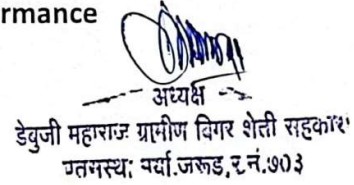 rmance
अध्यक्ष
डेबुजी महाराज ग्रामीण बिगर शेती सहकारी
पतसंस्था मर्या.जरुड,र.नं.७०३